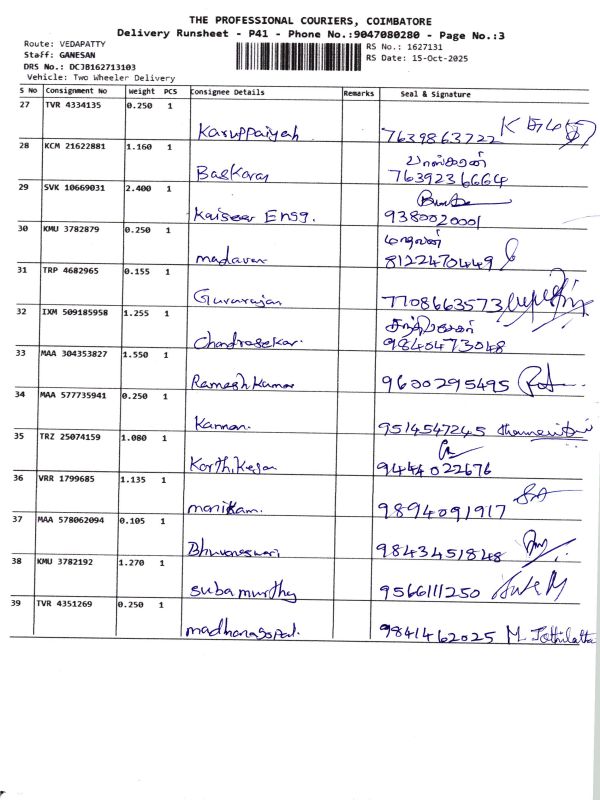 THE PROFESSIONAL COURIERS, COIMBATORE
Delivery Runsheet - P41 - Phone No.:9047080280 - Page No.:3
Route: VEDAPATTY
RS No.: 1627131
Staff: GANESAN
RS Date: 15-Oct-2025
DRS No.: DCJB162713103
Vehicle: Two Wheeler Delivery
S No Consignment No Weight PCS Consignee Details Remarks Seal & Signature
27 TVR 4334135 0.250 1
Karuppaiyah 7639863722
28 KCM 21622881 1.160 1
பாஸ்கரன்
Baskaran 7639236664
29 SVK 10669031 2.400 1
Kaiseer Engg. 9380020001
30 KMU 3782879 0.250 1
மாதவன்
madavan 8122470449
31 TRP 4682965 0.155 1
Gururajan 7708663573
32 IXM 509185958 1.255 1
Chandrasekar. 9840473048
33 MAA 304353827 1.550 1
Rameshkumar 9600295495
34 MAA 577735941 0.250 1
Kannan. 9514547245
35 TRZ 25074159 1.080 1
Karthikeyan 9444022676
36 VRR 1799685 1.135 1
manikam. 9894091917
37 MAA 578062094 0.105 1
Bhuvaneswari 9843451848
38 KMU 3782192 1.270 1
subamurthy 9566111250
39 TVR 4351269 0.250 1
madhanagopal. 9841462025 M. Jothilatha